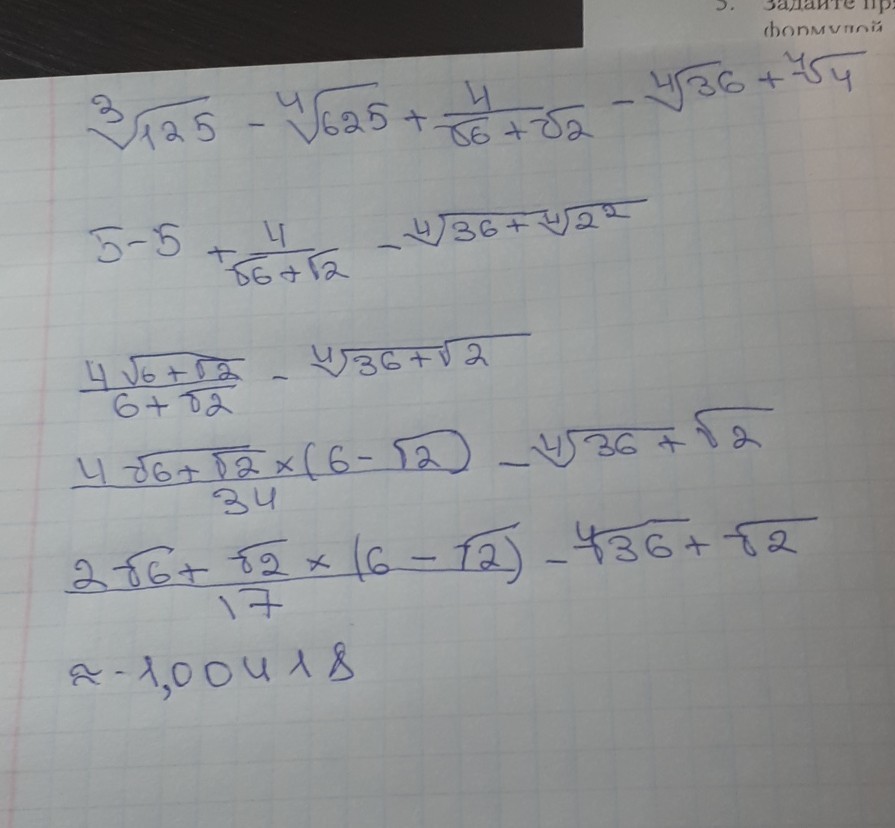 3. Задайте пр
формулой
∛125 - ∜625 + 4/(√6 + √2) - ∜36 + ∜4
5 - 5 + 4/(√6 + √2) - ∜(36 + ∜2²)
4√(6 + √2)/(6 + √2) - ∜(36 + √2)
4√(6 + √2) × (6 - √2)/34 - ∜(36 + √2)
2√6 + √2 × (6 - √2)/17 - ∜36 + √2
≈ -1,00418